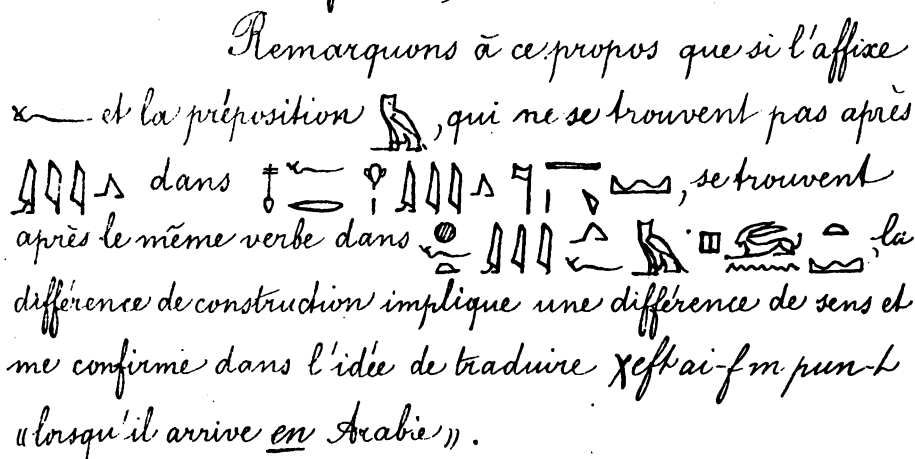 Remarquons à ce propos que si l'affixe
𓆑 et la préposition 𓅓, qui ne se trouvent pas après
𓇋𓇋𓇋𓂻 dans 𓄤𓆑𓂋 𓁷𓏤 𓇋𓇋𓇋𓂻 𓊹 𓇾 𓈉, se trouvent
après le même verbe dans 𓐍𓆑𓏏 𓇋𓇋𓇋𓂻𓆑 𓅓 𓊪𓃹𓈖𓏏𓈉, la
différence de construction implique une différence de sens et
me confirme dans l'idée de traduire χeft ai-f m pun-t
«lorsqu'il arrive en Arabie».